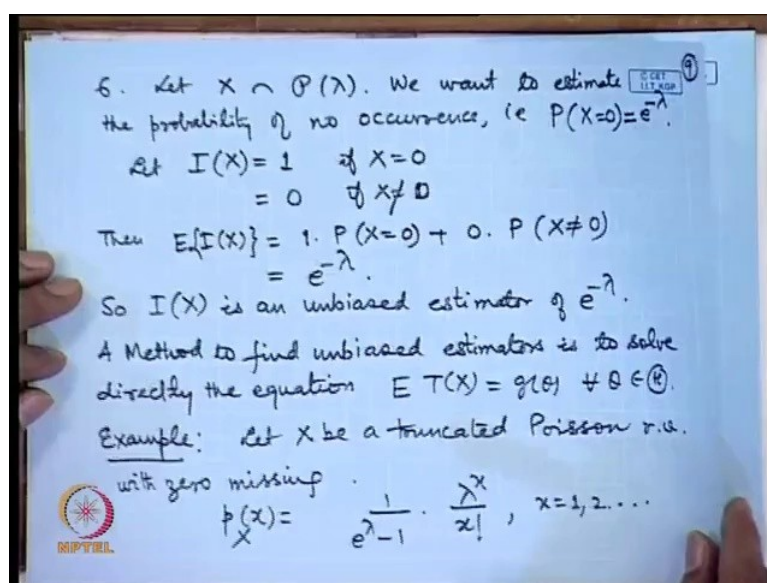 6. Let X ~ P(λ). We want to estimate
© CET
I.I.T. KGP
9
the probability of no occurrence, ie P(X=0)=e^{-λ}.
Let I(X) = 1 if X=0
= 0 if X≠0
Then E{I(X)} = 1. P(X=0) + 0. P(X≠0)
= e^{-λ}.
So I(X) is an unbiased estimator of e^{-λ}.
A Method to find unbiased estimators is to solve
directly the equation E T(X) = g(θ) ∀ θ ∈ Ⓗ.
Example: Let X be a truncated Poisson r.v.
with zero missing.
p_X(x) = 1/(e^λ-1) . λ^x/x!, x=1,2....
NPTEL